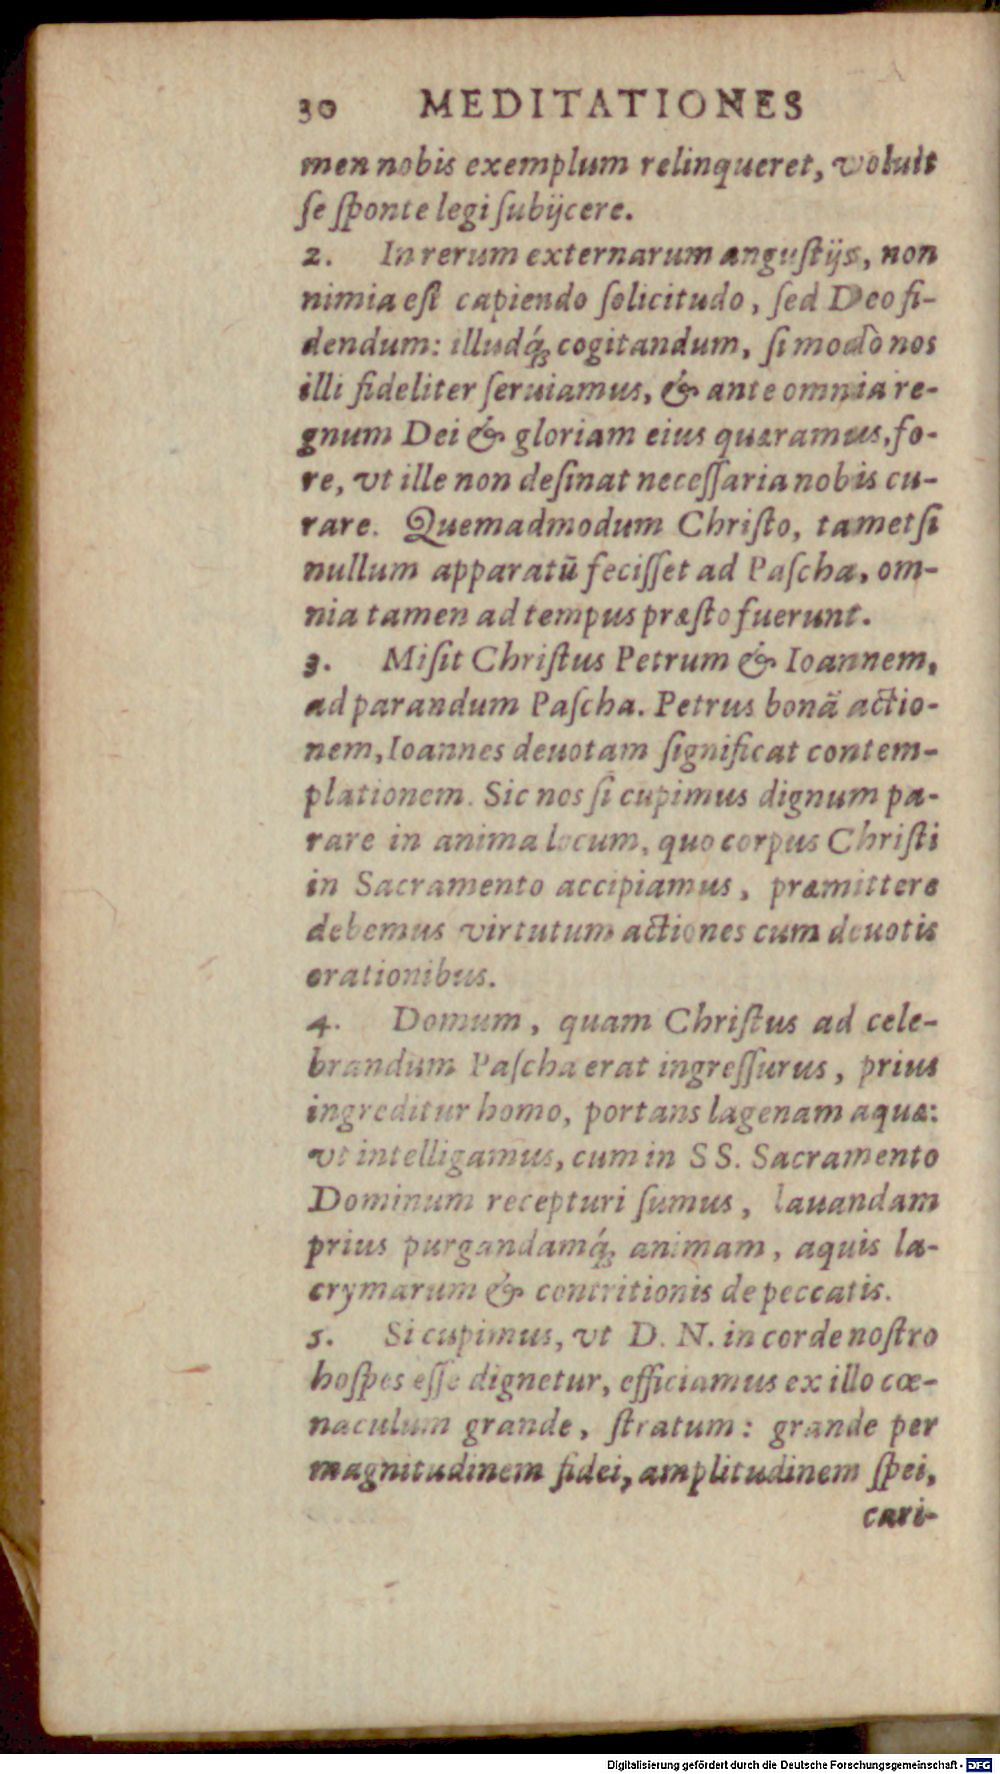 30 MEDITATIONES
men nobis exemplum relinqueret, voluit
ſe ſponte legi ſubijcere.
2. In rerum externarum anguſtijs, non
nimia eſt capiendo ſolicitudo, ſed Deo fi-
dendum: illudq́; cogitandum, ſi modò nos
illi fideliter ſeruiamus, & ante omnia re-
gnum Dei & gloriam eius quæramus, fo-
re, vt ille non deſinat neceſſaria nobis cu-
rare. Quemadmodum Chriſto, tametſi
nullum apparatū feciſſet ad Paſcha, om-
nia tamen ad tempus præſto fuerunt.
3. Miſit Chriſtus Petrum & Ioannem,
ad parandum Paſcha. Petrus bonā actio-
nem, Ioannes deuotam ſignificat contem-
plationem. Sic nos ſi cupimus dignum pa-
rare in anima locum, quo corpus Chriſti
in Sacramento accipiamus, præmittere
debemus virtutum actiones cum deuotis
orationibus.
4. Domum, quam Chriſtus ad cele-
brandum Paſcha erat ingreſſurus, prius
ingreditur homo, portans lagenam aquæ:
vt intelligamus, cum in SS. Sacramento
Dominum recepturi ſumus, lauandam
prius purgandamq́; animam, aquis la-
crymarum & contritionis de peccatis.
5. Si cupimus, vt D. N. in corde noſtro
hoſpes eſſe dignetur, efficiamus ex illo cœ-
naculum grande, ſtratum: grande per
magnitudinem fidei, amplitudinem ſpei,
cari-
Digitalisierung gefördert durch die Deutsche Forschungsgemeinschaft - DFG